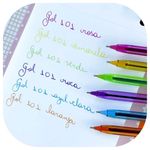 Gel 101 rosa
Gel 101 esmeralda
Gel 101 verde
Gel 101 roxa
Gel 101 azul claro
Gel 101 laranja